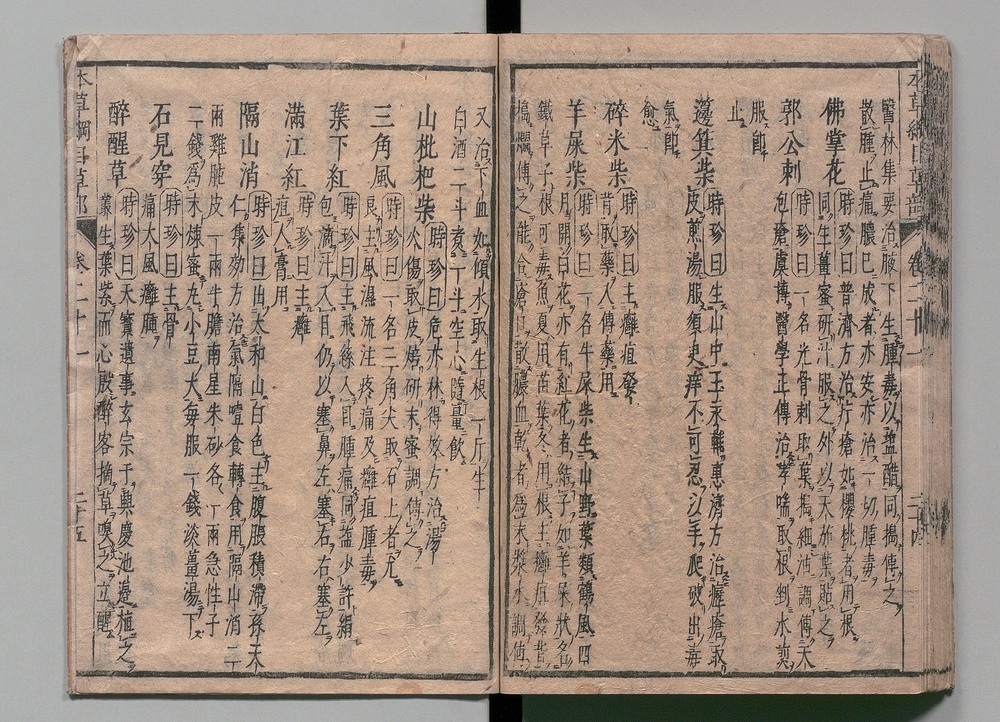 醫林集要治腋下生腫毒以鹽醋同搗傅之
散腫止痛膿已成者亦安亦治一切腫毒
佛掌花
時珍曰普濟方治疔瘡如櫻桃者用根
同生薑蜜研汁服之外以天茄葉貼之
郭公刺
時珍曰一名光骨刺取葉搗細油調傅天
泡瘡虞摶醫學正傳治哮喘取根剉水煎
服即
止
籩箕柴
時珍曰生山中王永輔惠濟方治癧瘡取
皮煎湯服須臾痒不可忍以手爬破出毒
氣即
愈
碎米柴
時珍曰主癰疽發
背取藥入傅藥用
羊屎柴
時珍曰一名牛屎柴生山野葉類鶴風四
月開白花亦有紅花者結子如羊屎狀名
鐵草子根可毒魚夏用苗葉冬用根主癰疽發背
搗爛傅之能合瘡口散膿血乾者為末漿水調傅
又治下血如傾水取生根一斤生
白酒二斗煮一斗空心隨量飲
山枇杷柴
時珍曰危亦林得效方治湯
火傷取皮焙研末蜜調傅之
三角風
時珍曰一名三角尖取石上者尤
良主風濕流注疼痛及癰疽腫毒
葉下紅
時珍曰主飛絲入目腫痛同鹽少許絹
包滴汁入目仍以塞鼻左塞右右塞左
滿江紅
時珍曰主癰
疽入膏用
隔山消
時珍曰出太和山白色主腹脹積滯孫天
仁集効方治氣隔噎食轉食用隔山消二
兩雞肫皮一兩牛膽南星朱砂各一兩急性子
二錢為末煉蜜丸小豆大每服一錢淡薑湯下
石見穿
時珍曰主骨
痛大風癰腫
醉醒草
時珍曰天寶遺事玄宗于興慶池邊植之
叢生葉紫而心殷醉客摘草嗅之立醒
本草綱目草部
卷二十一
二十五